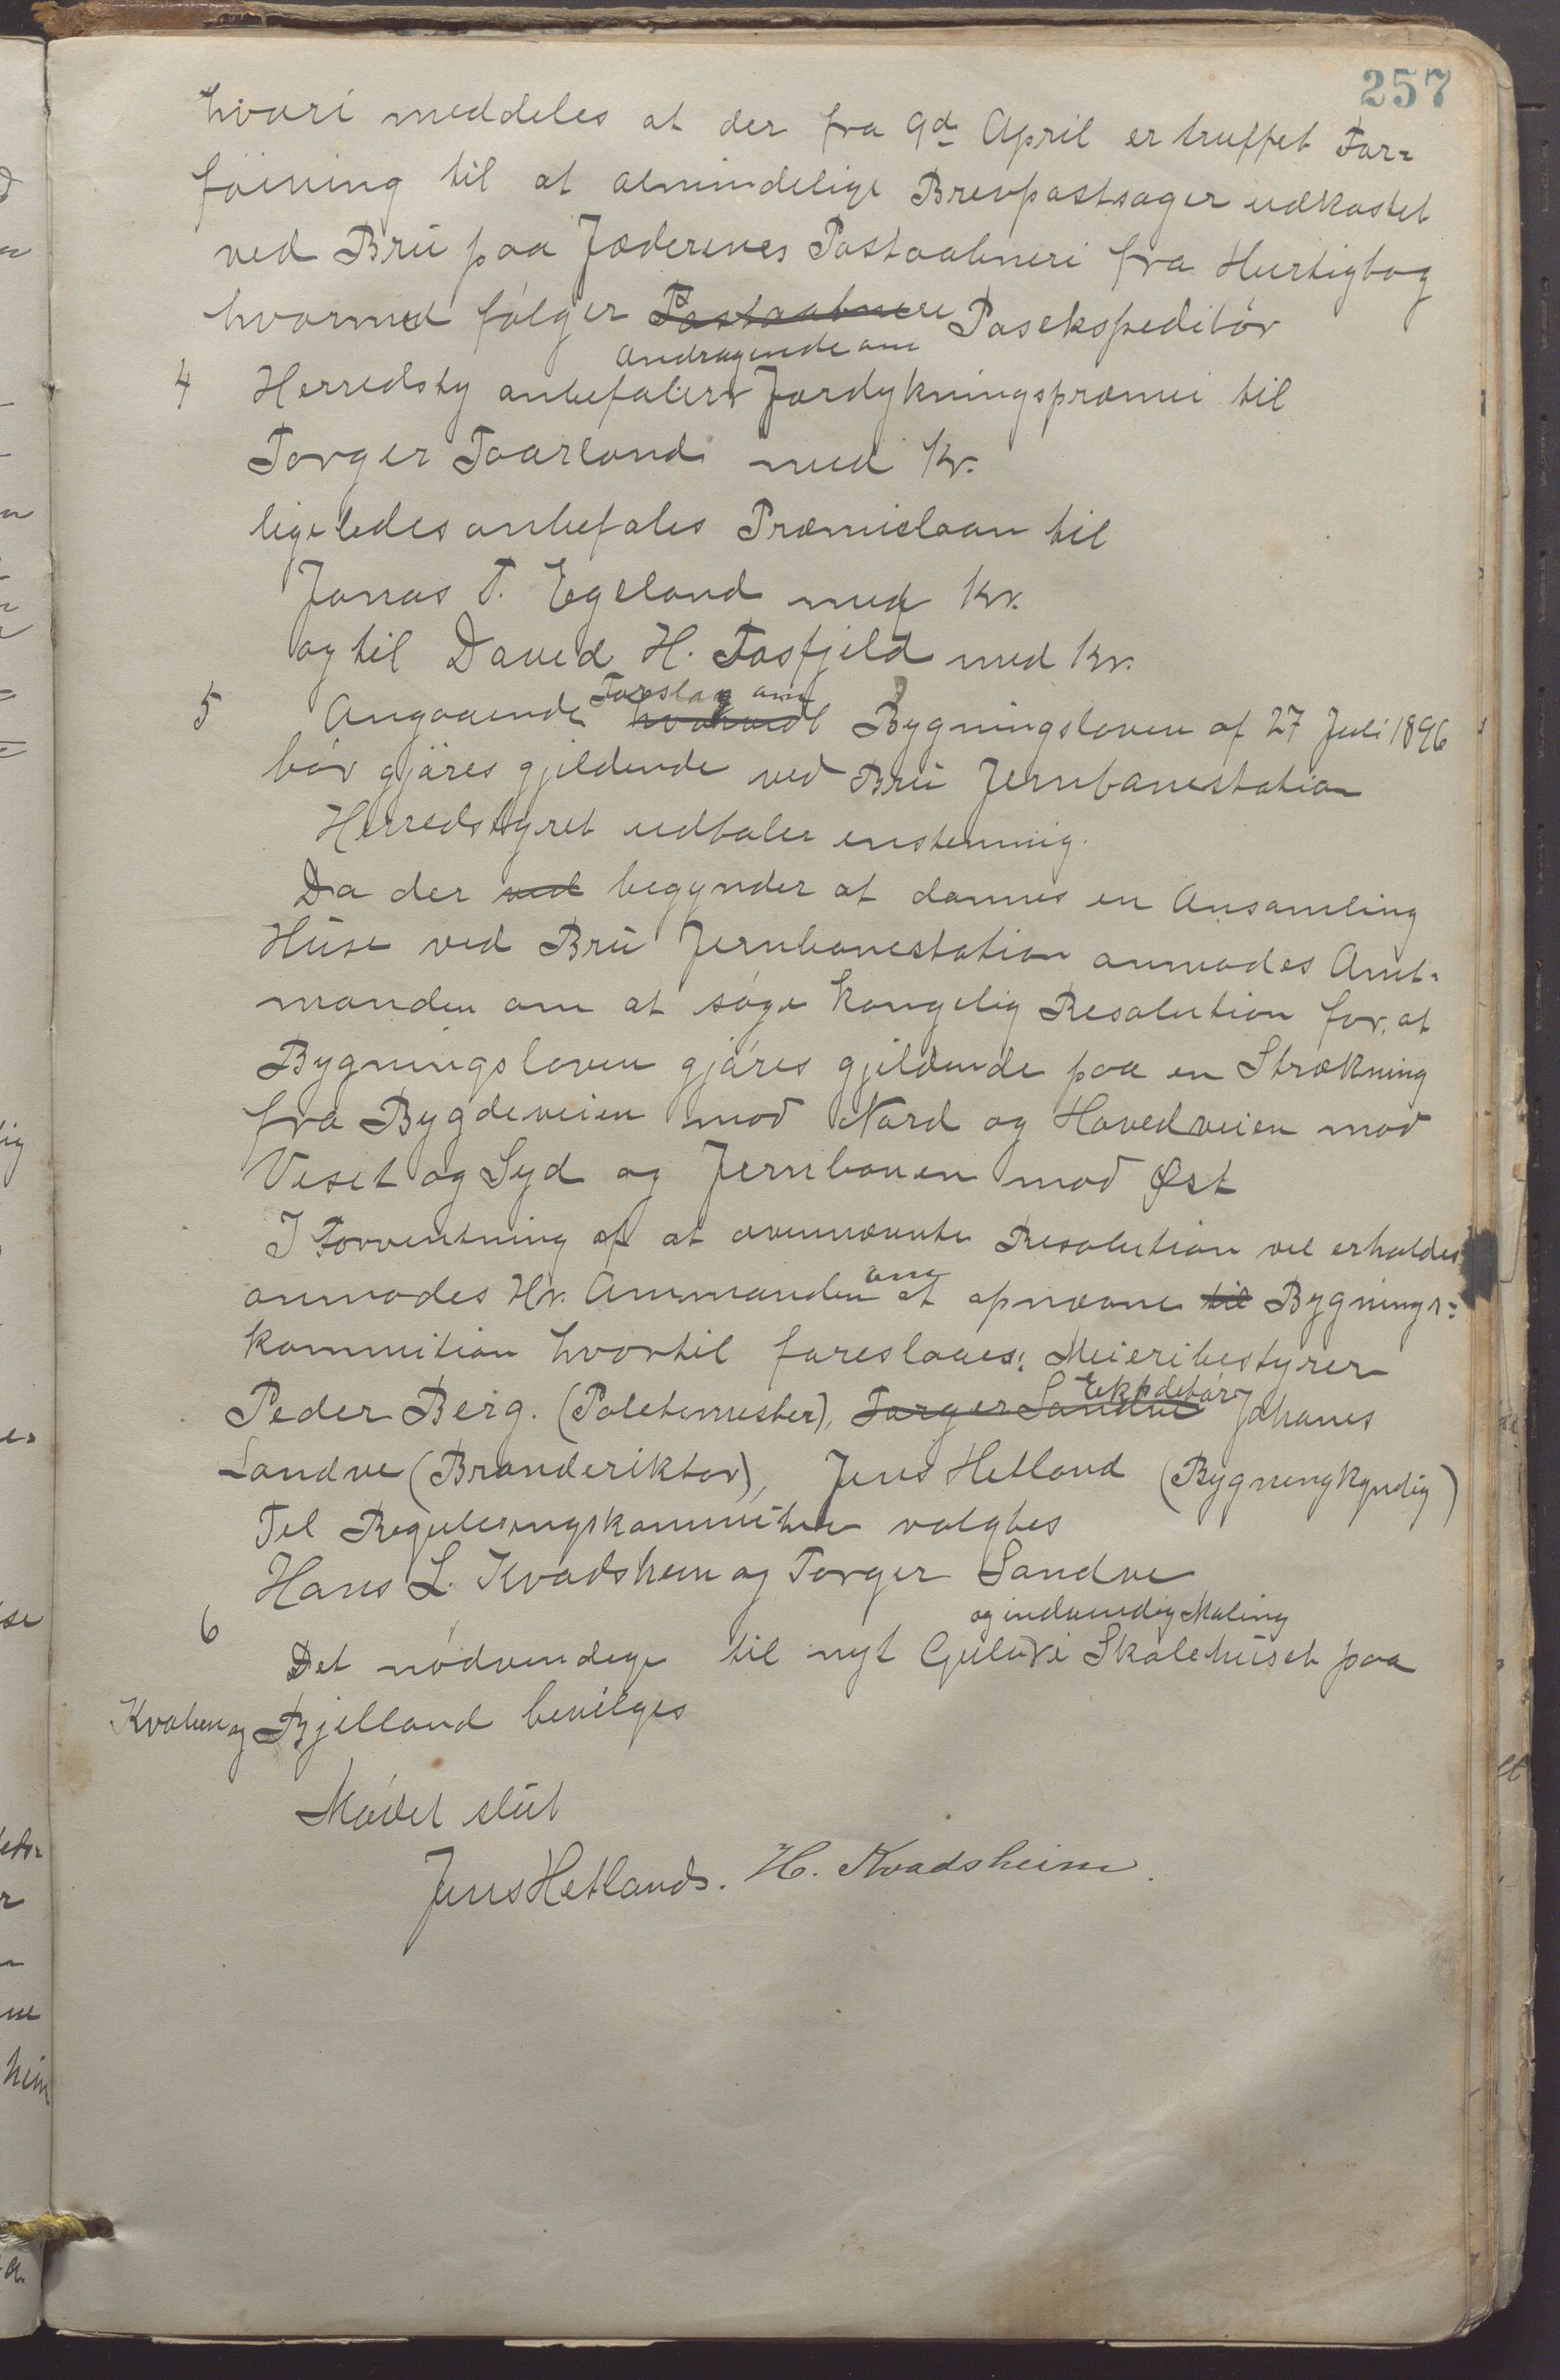 257
hvori meddeles at der fra 9d April er truffet For=
føining til at almindelige Brevpostsager udkastet
ved Bru paa Jæderenes Postaabneri fra Hurtigtog
hvormed følger Postaabnere Posekspeditør
Andragende om
4 Herredsty anbefaler Jordykningspræmie til
Torger Taarland med Kr.
ligeledes anbefales Præmielaan til
Jonas T. Egeland med Kr.
og til David H. Tosfjeld med Kr.
Forslag om
5 Angaaende hvorvidt Bygningsloven af 27 Juli 1896
bør gjøres gjeldende ved Bru Jernbanestation
Herredstyret udtaler enstemmig.
Da der ved begynder at dannes en Ansamling
Huse ved Bru Jernbanestation anmodes Amt=
manden om at søge Kongelig Resolution for at
Bygningsloven gjøres gjeldende paa en Strækning
fra Bygdeveien mod Nord og Hovedveien mod
Vest og Syd og Jernbanen mod Øst
I Forventning af at ovennævnte Resolution vil erholdes
anmodes Hr. Ammanden om at opnævne til Bygnings=
kommition hvortil foreslaaes: Meieribestyrer
Peder Berg. (Politemester), Torger Sandve Ekspditør Johanes
Sandve (Branderiktør), Jens Hetland (Bygningkyndig)
Til Reguleringskommition valgtes
Hans L. Kvadsheim og Torger Sandve
og indvendig Maling
6 Det nødvendige til nyt Gulv i Skolehuset paa
Kvalen og Bjelland bevilges
Mødet slut
Jens Hetland. H. Kvadsheim.